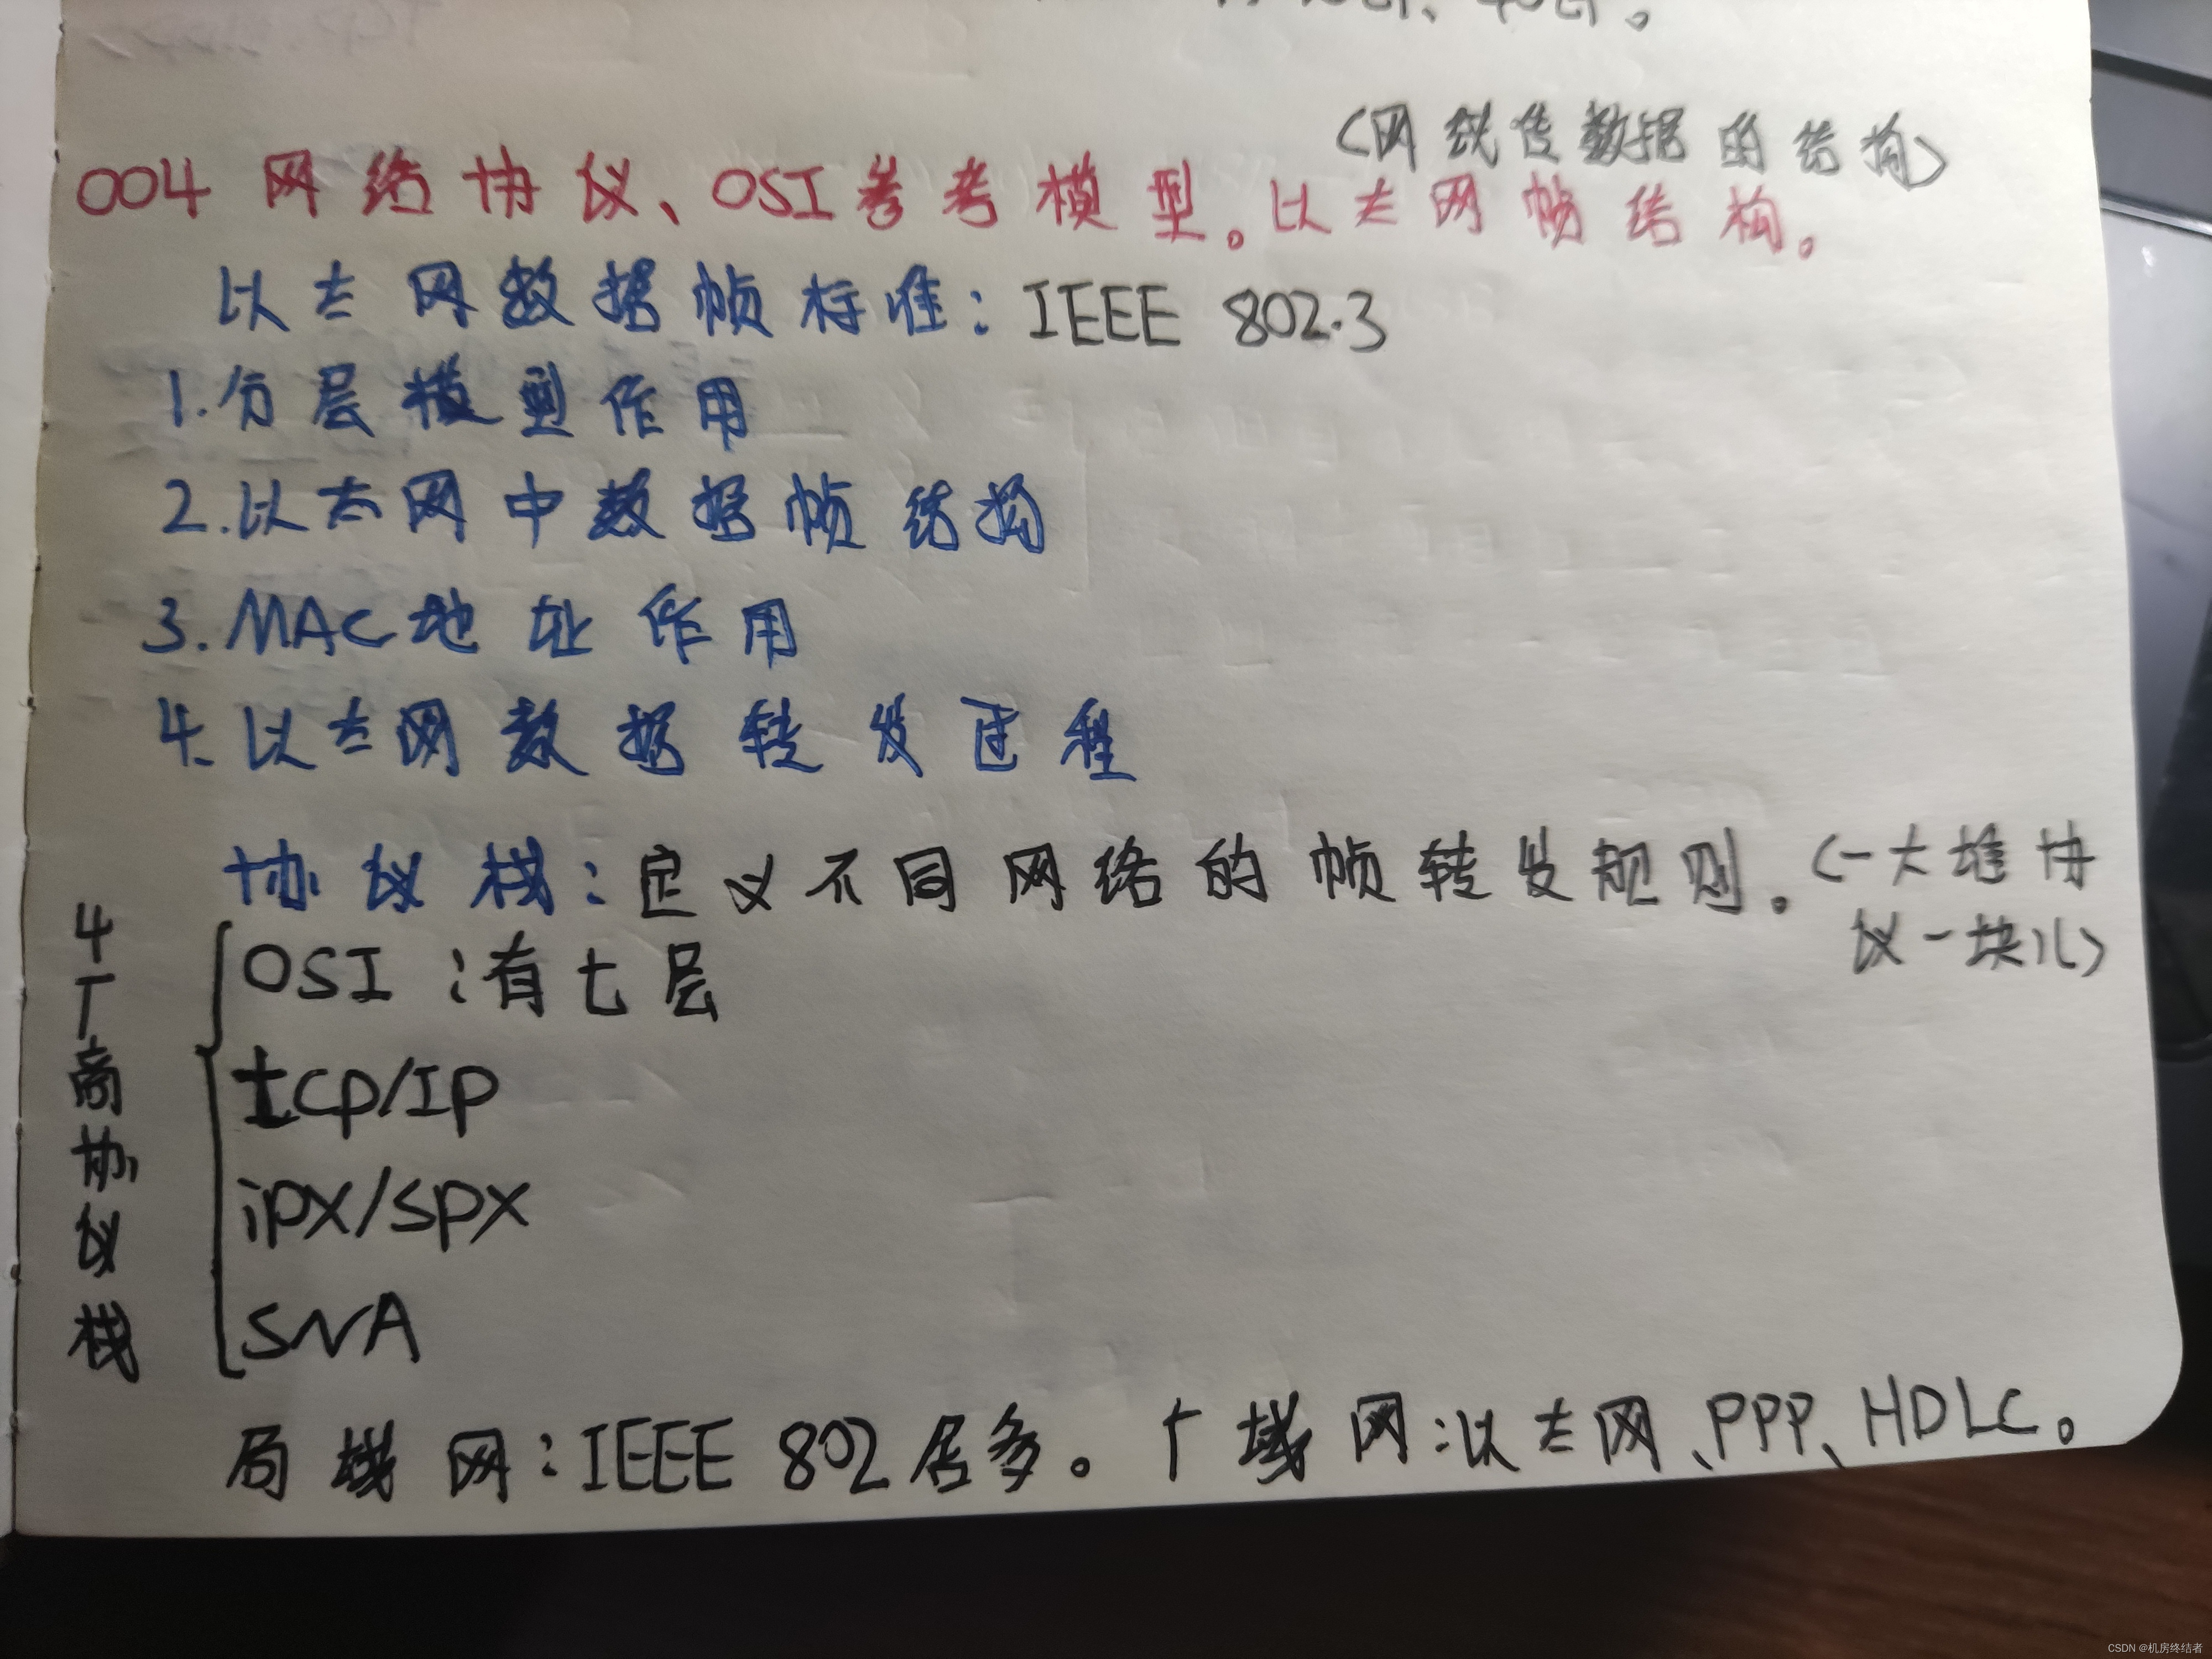 (网线传数据的结构)
004 网络协议、OSI参考模型。以太网帧结构。
以太网数据帧标准：IEEE 802.3
1.分层模型作用
2.以太网中数据帧结构
3.MAC地址作用
4.以太网数据转发过程
协议栈：定义不同网络的帧转发规则。(一大堆协
议一块儿)
4厂商协议栈
OSI：有七层
tcp/IP
ipx/spx
SNA
局域网：IEEE 802居多。广域网：以太网、PPP、HDLC。
CSDN @机房终结者